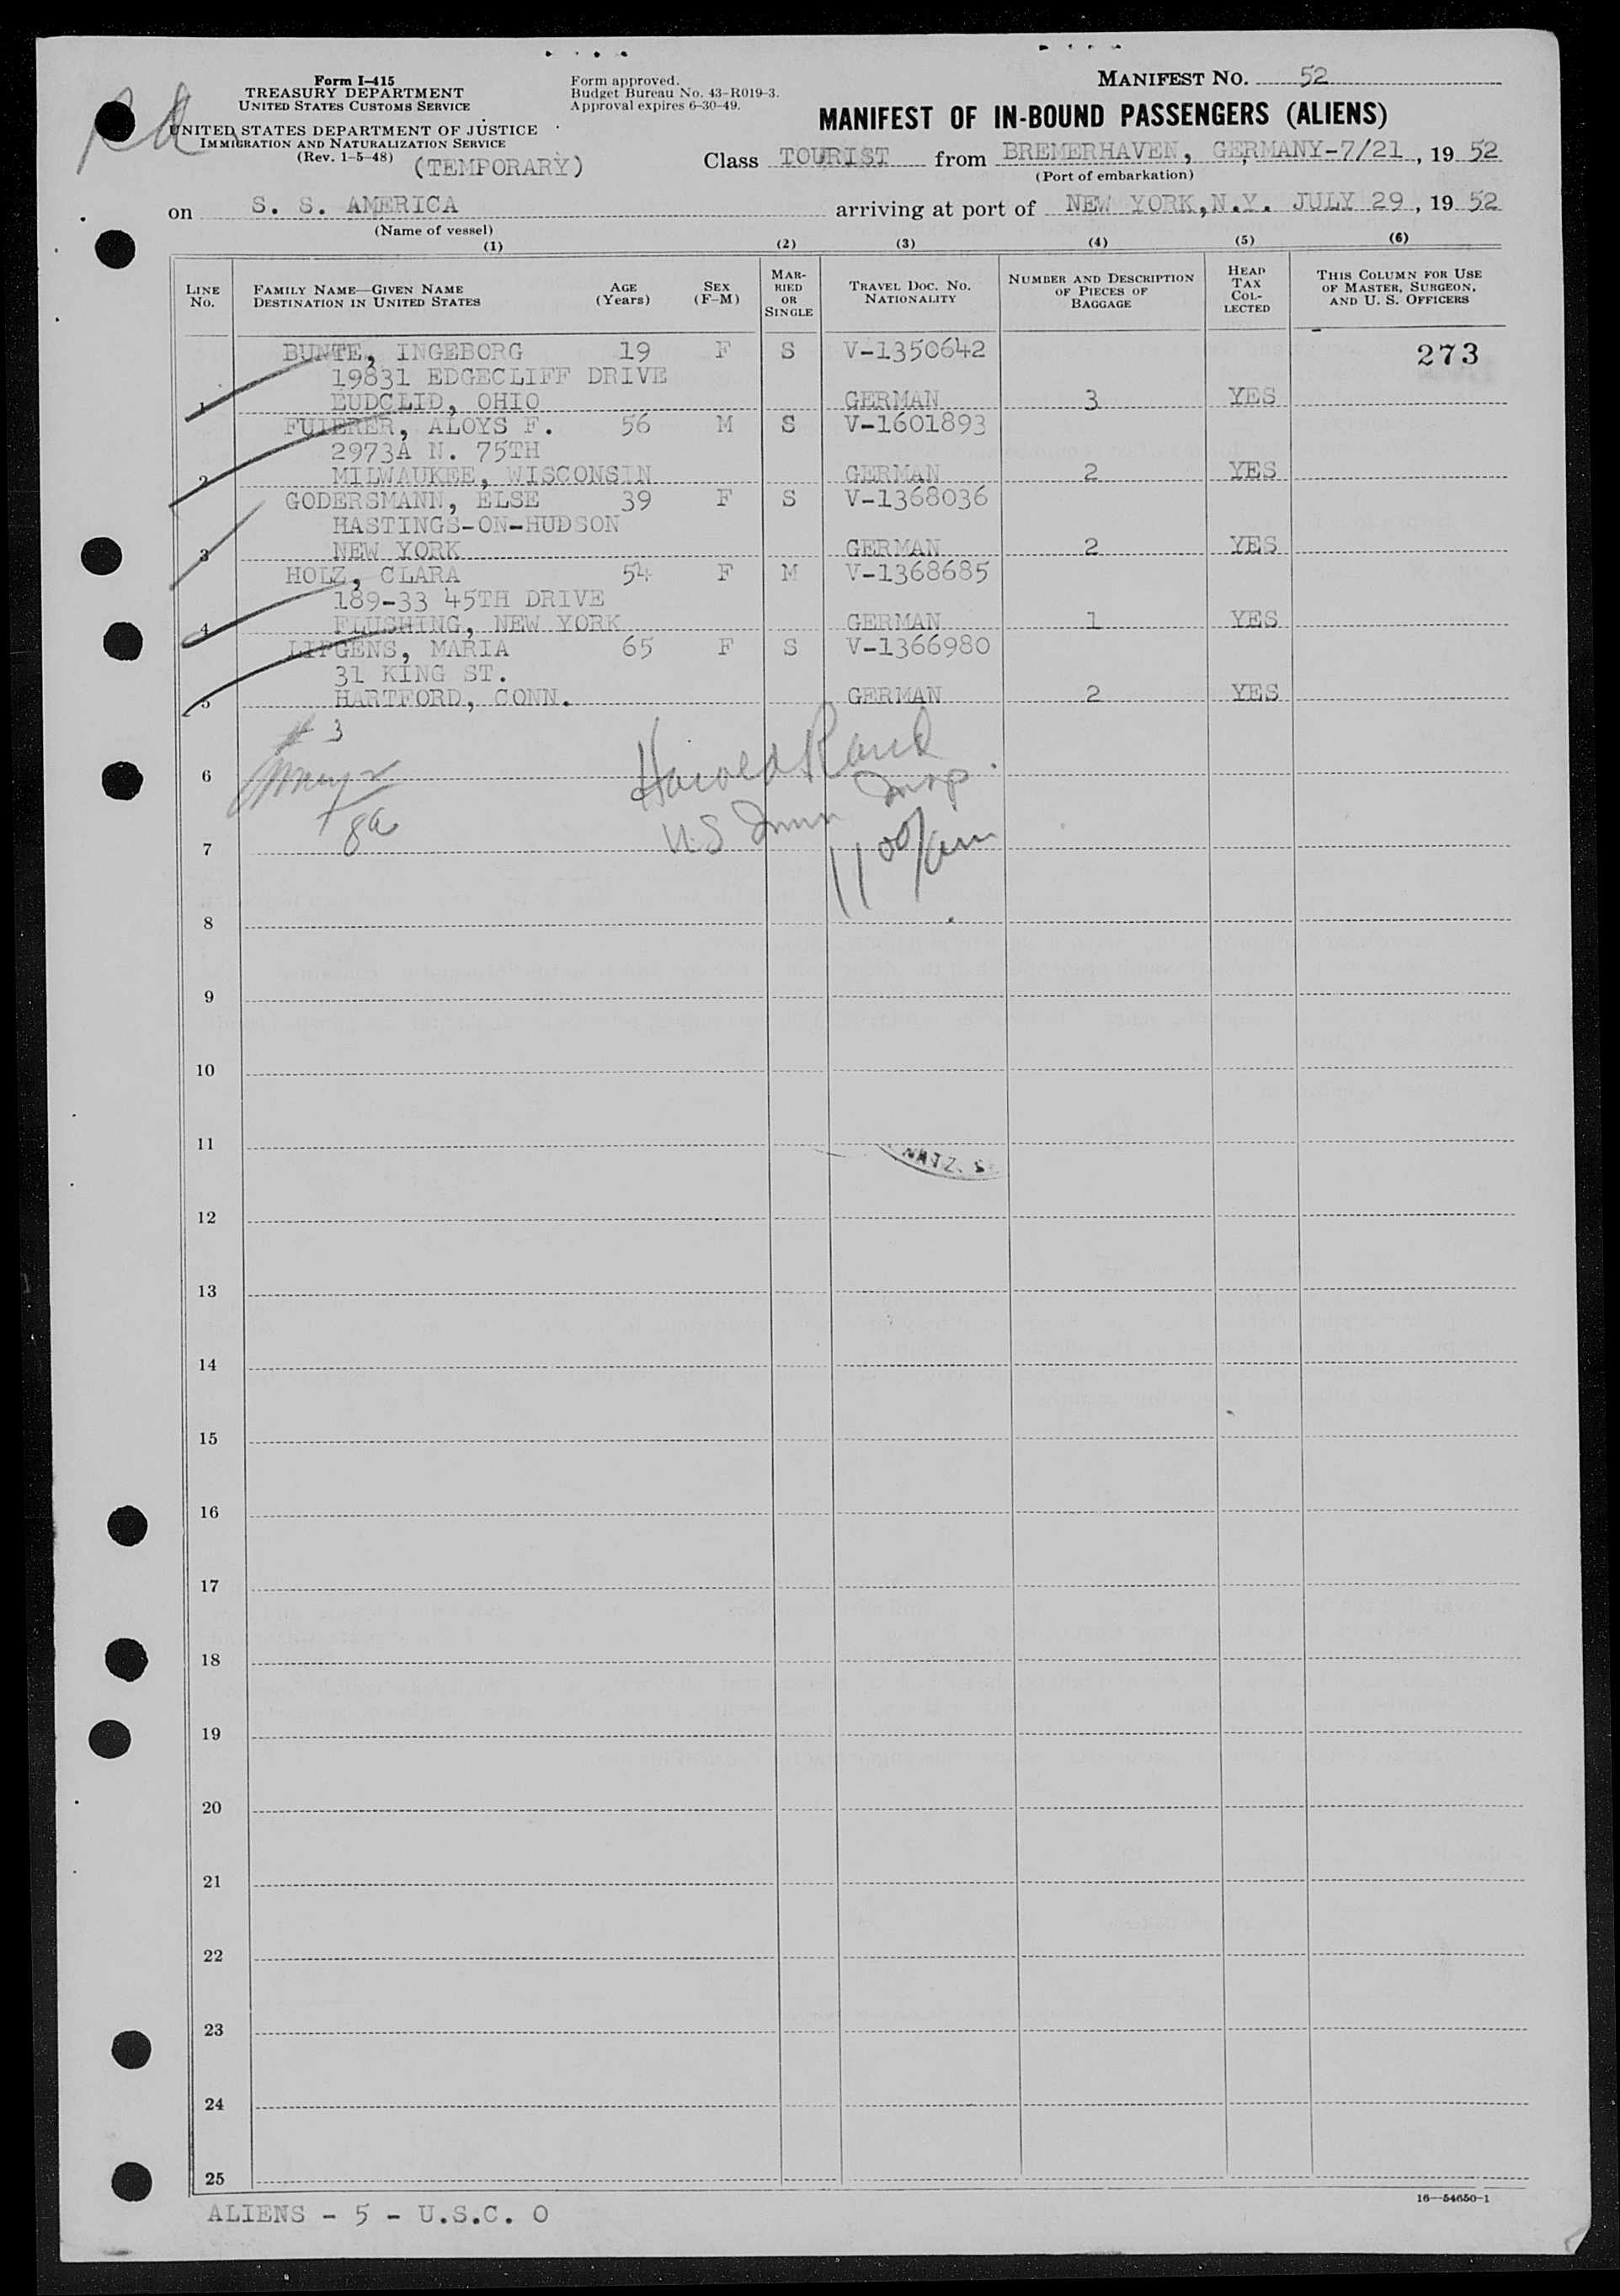 Form I-415
TREASURY DEPARTMENT
UNITED STATES CUSTOMS SERVICE
UNITED STATES DEPARTMENT OF JUSTICE
IMMIGRATION AND NATURALIZATION SERVICE
(Rev. 1-5-48)
(TEMPORARY)
Form approved.
Budget Bureau No. 43-R019-3.
Approval expires 6-30-49.
MANIFEST NO. 52
MANIFEST OF IN-BOUND PASSENGERS (ALIENS)
Class TOURIST from BREMERHAVEN, GERMANY-7/21, 19 52
(Port of embarkation)
on S. S. AMERICA arriving at port of NEW YORK, N.Y. JULY 29, 19 52
(Name of vessel)
(1) (2) (3) (4) (5) (6)
LINE NO. FAMILY NAME—GIVEN NAME DESTINATION IN UNITED STATES AGE (Years) SEX (F-M) MARRIED OR SINGLE TRAVEL DOC. NO. NATIONALITY NUMBER AND DESCRIPTION OF PIECES OF BAGGAGE HEAD TAX COLLECTED THIS COLUMN FOR USE OF MASTER, SURGEON, AND U. S. OFFICERS
BUNTE, INGEBORG 19 F S V-1350642 273
19831 EDGECLIFF DRIVE
1 EUDCLID, OHIO GERMAN 3 YES
FUIERER, ALOYS F. 56 M S V-1601893
2973A N. 75TH
2 MILWAUKEE, WISCONSIN GERMAN 2 YES
GODERSMANN, ELSE 39 F S V-1368036
HASTINGS-ON-HUDSON
3 NEW YORK GERMAN 2 YES
HOLZ, CLARA 54 F M V-1368685
189-33 45TH DRIVE
4 FLUSHING, NEW YORK GERMAN 1 YES
LIFGENS, MARIA 65 F S V-1366980
31 KING ST.
5 HARTFORD, CONN. GERMAN 2 YES
# 3
Harold Rand
6
U.S Imm Insp.
7
11 00/am
8
9
10
11
NATZ. S
12
13
14
15
16
17
18
19
20
21
22
23
24
25
16—54650-1
ALIENS - 5 - U.S.C. 0